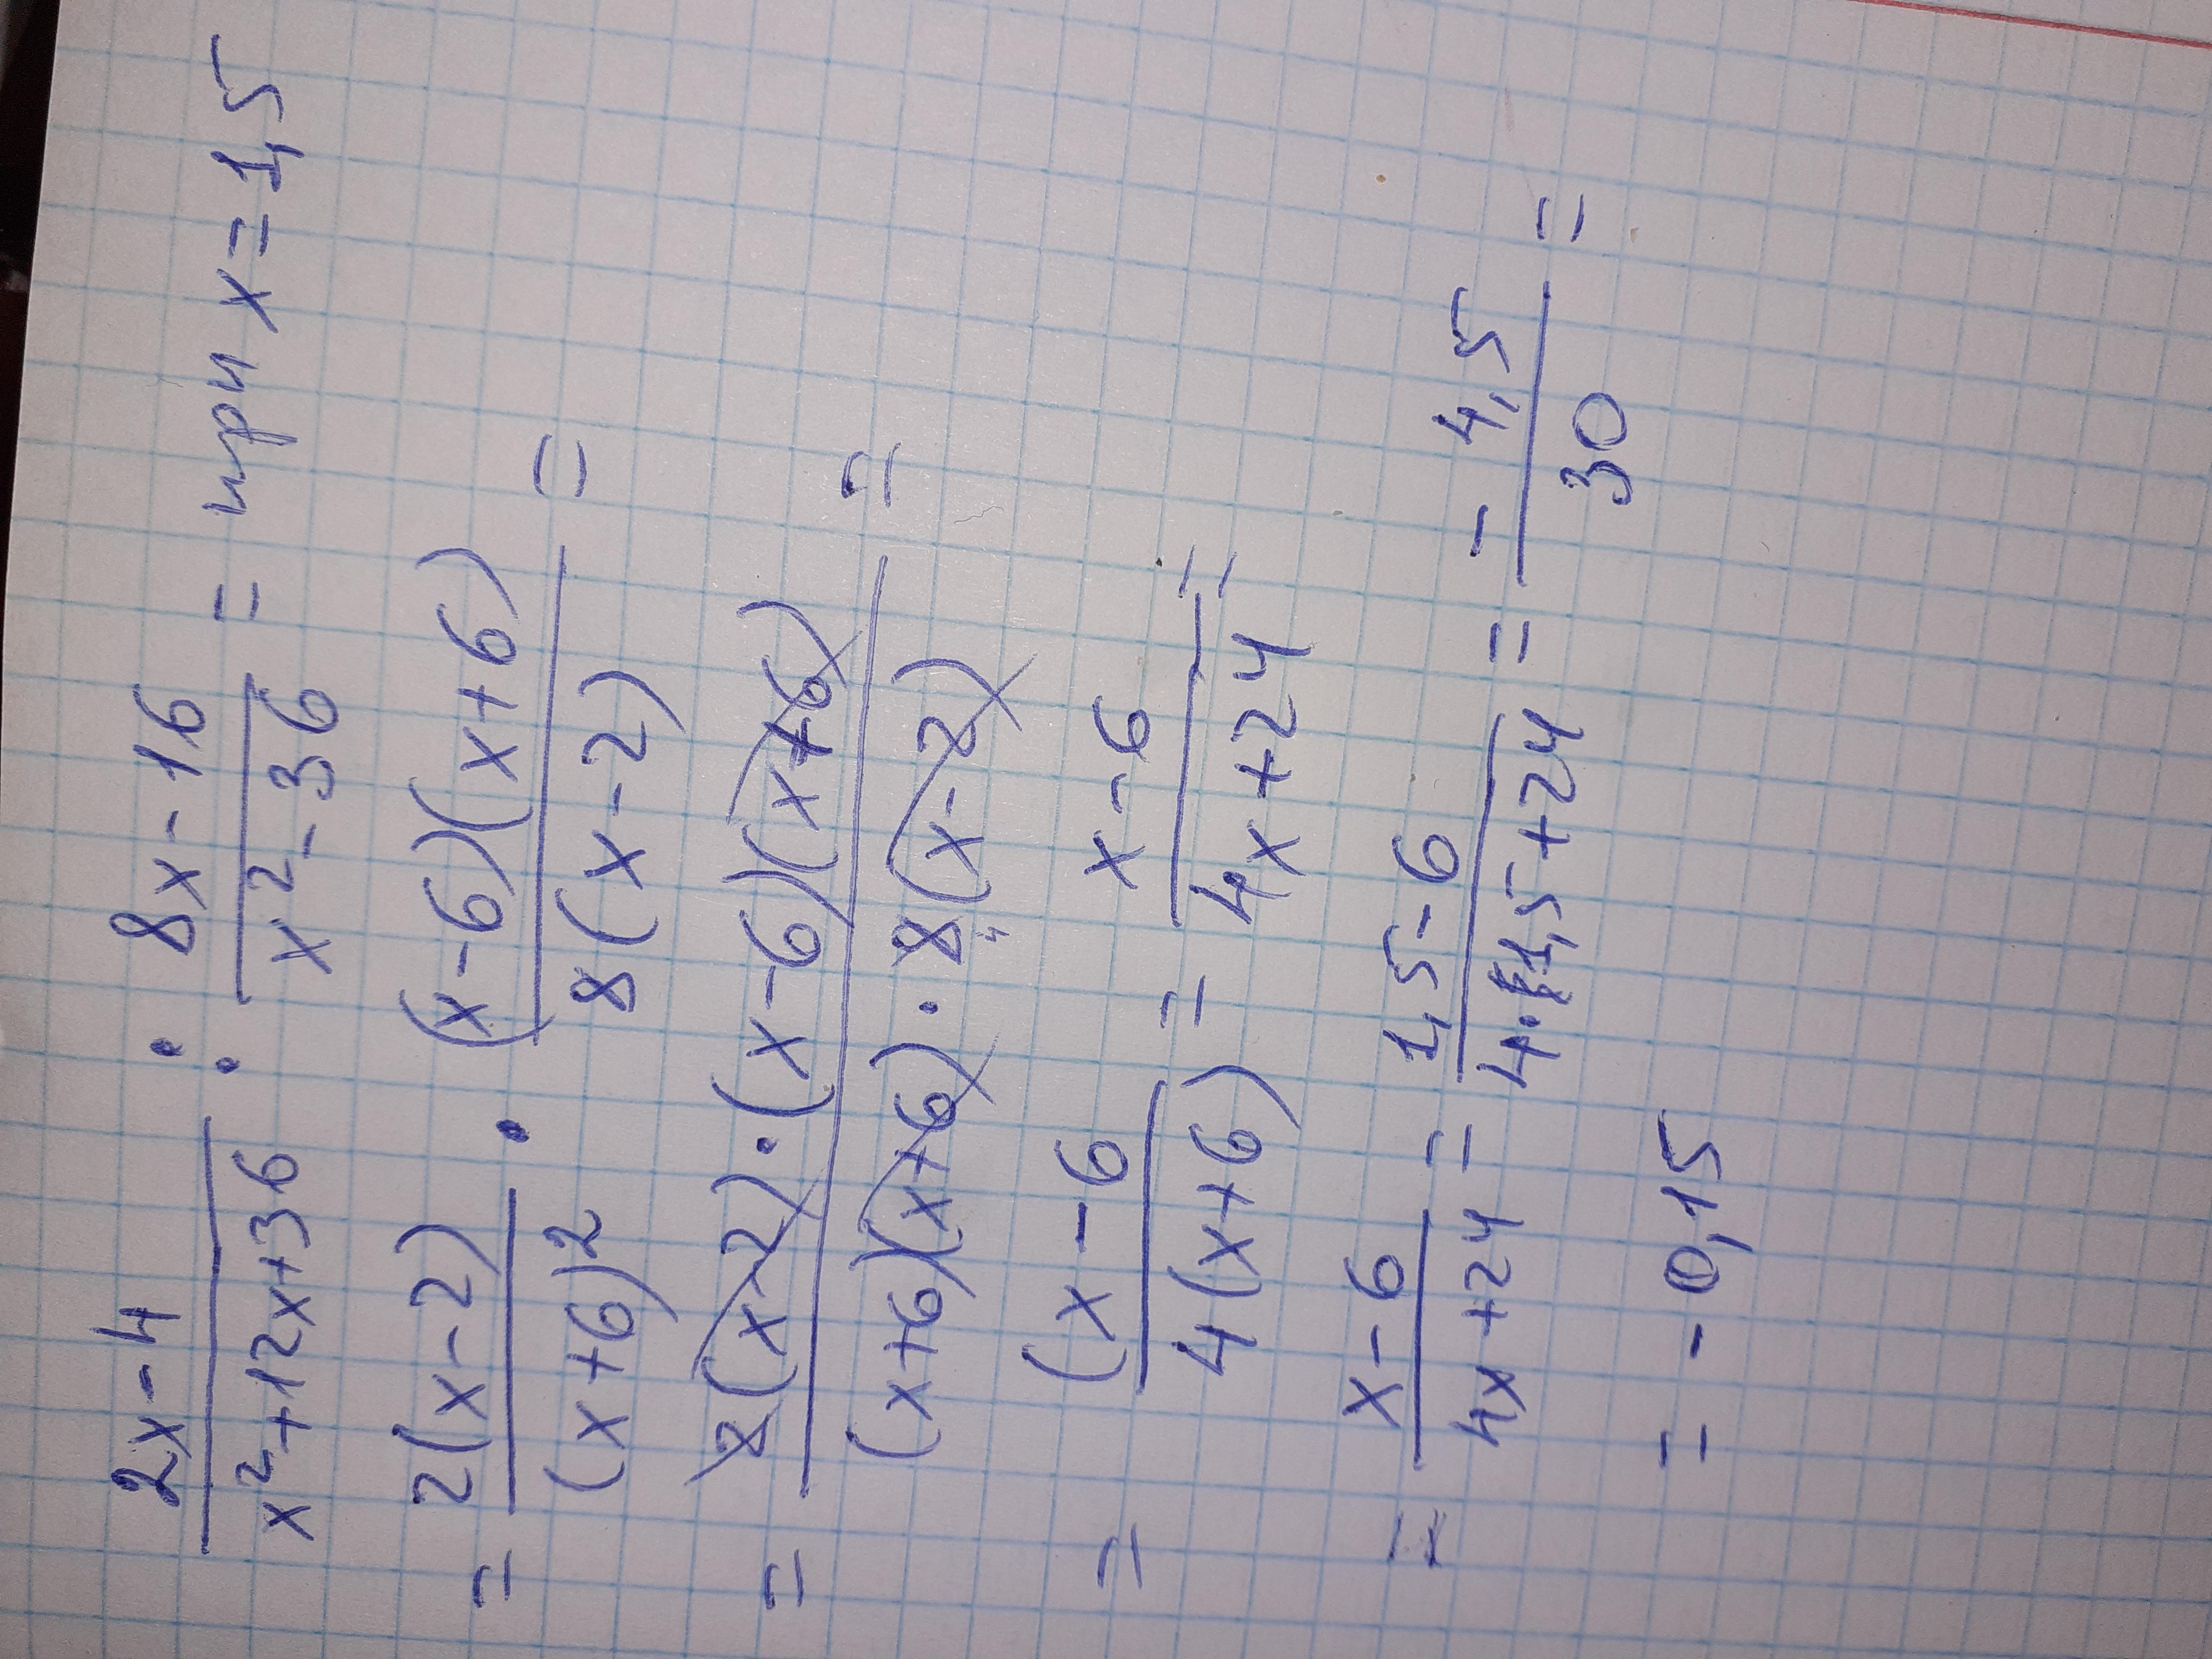 \frac{2x-4}{x^2+12x+36} : \frac{8x-16}{x^2-36} = при x=1,5
= \frac{2(x-2)}{(x+6)^2} \cdot \frac{(x-6)(x+6)}{8(x-2)} =
= \frac{2(x-2)\cdot(x-6)(x+6)}{(x+6)(x+6)\cdot 8(x-2)} =
= \frac{(x-6}{4(x+6)} = \frac{x-6}{4x+24} =
= \frac{x-6}{4x+24} = \frac{1,5-6}{4\cdot 1,5+24} = \frac{-4,5}{30} =
= -0,15